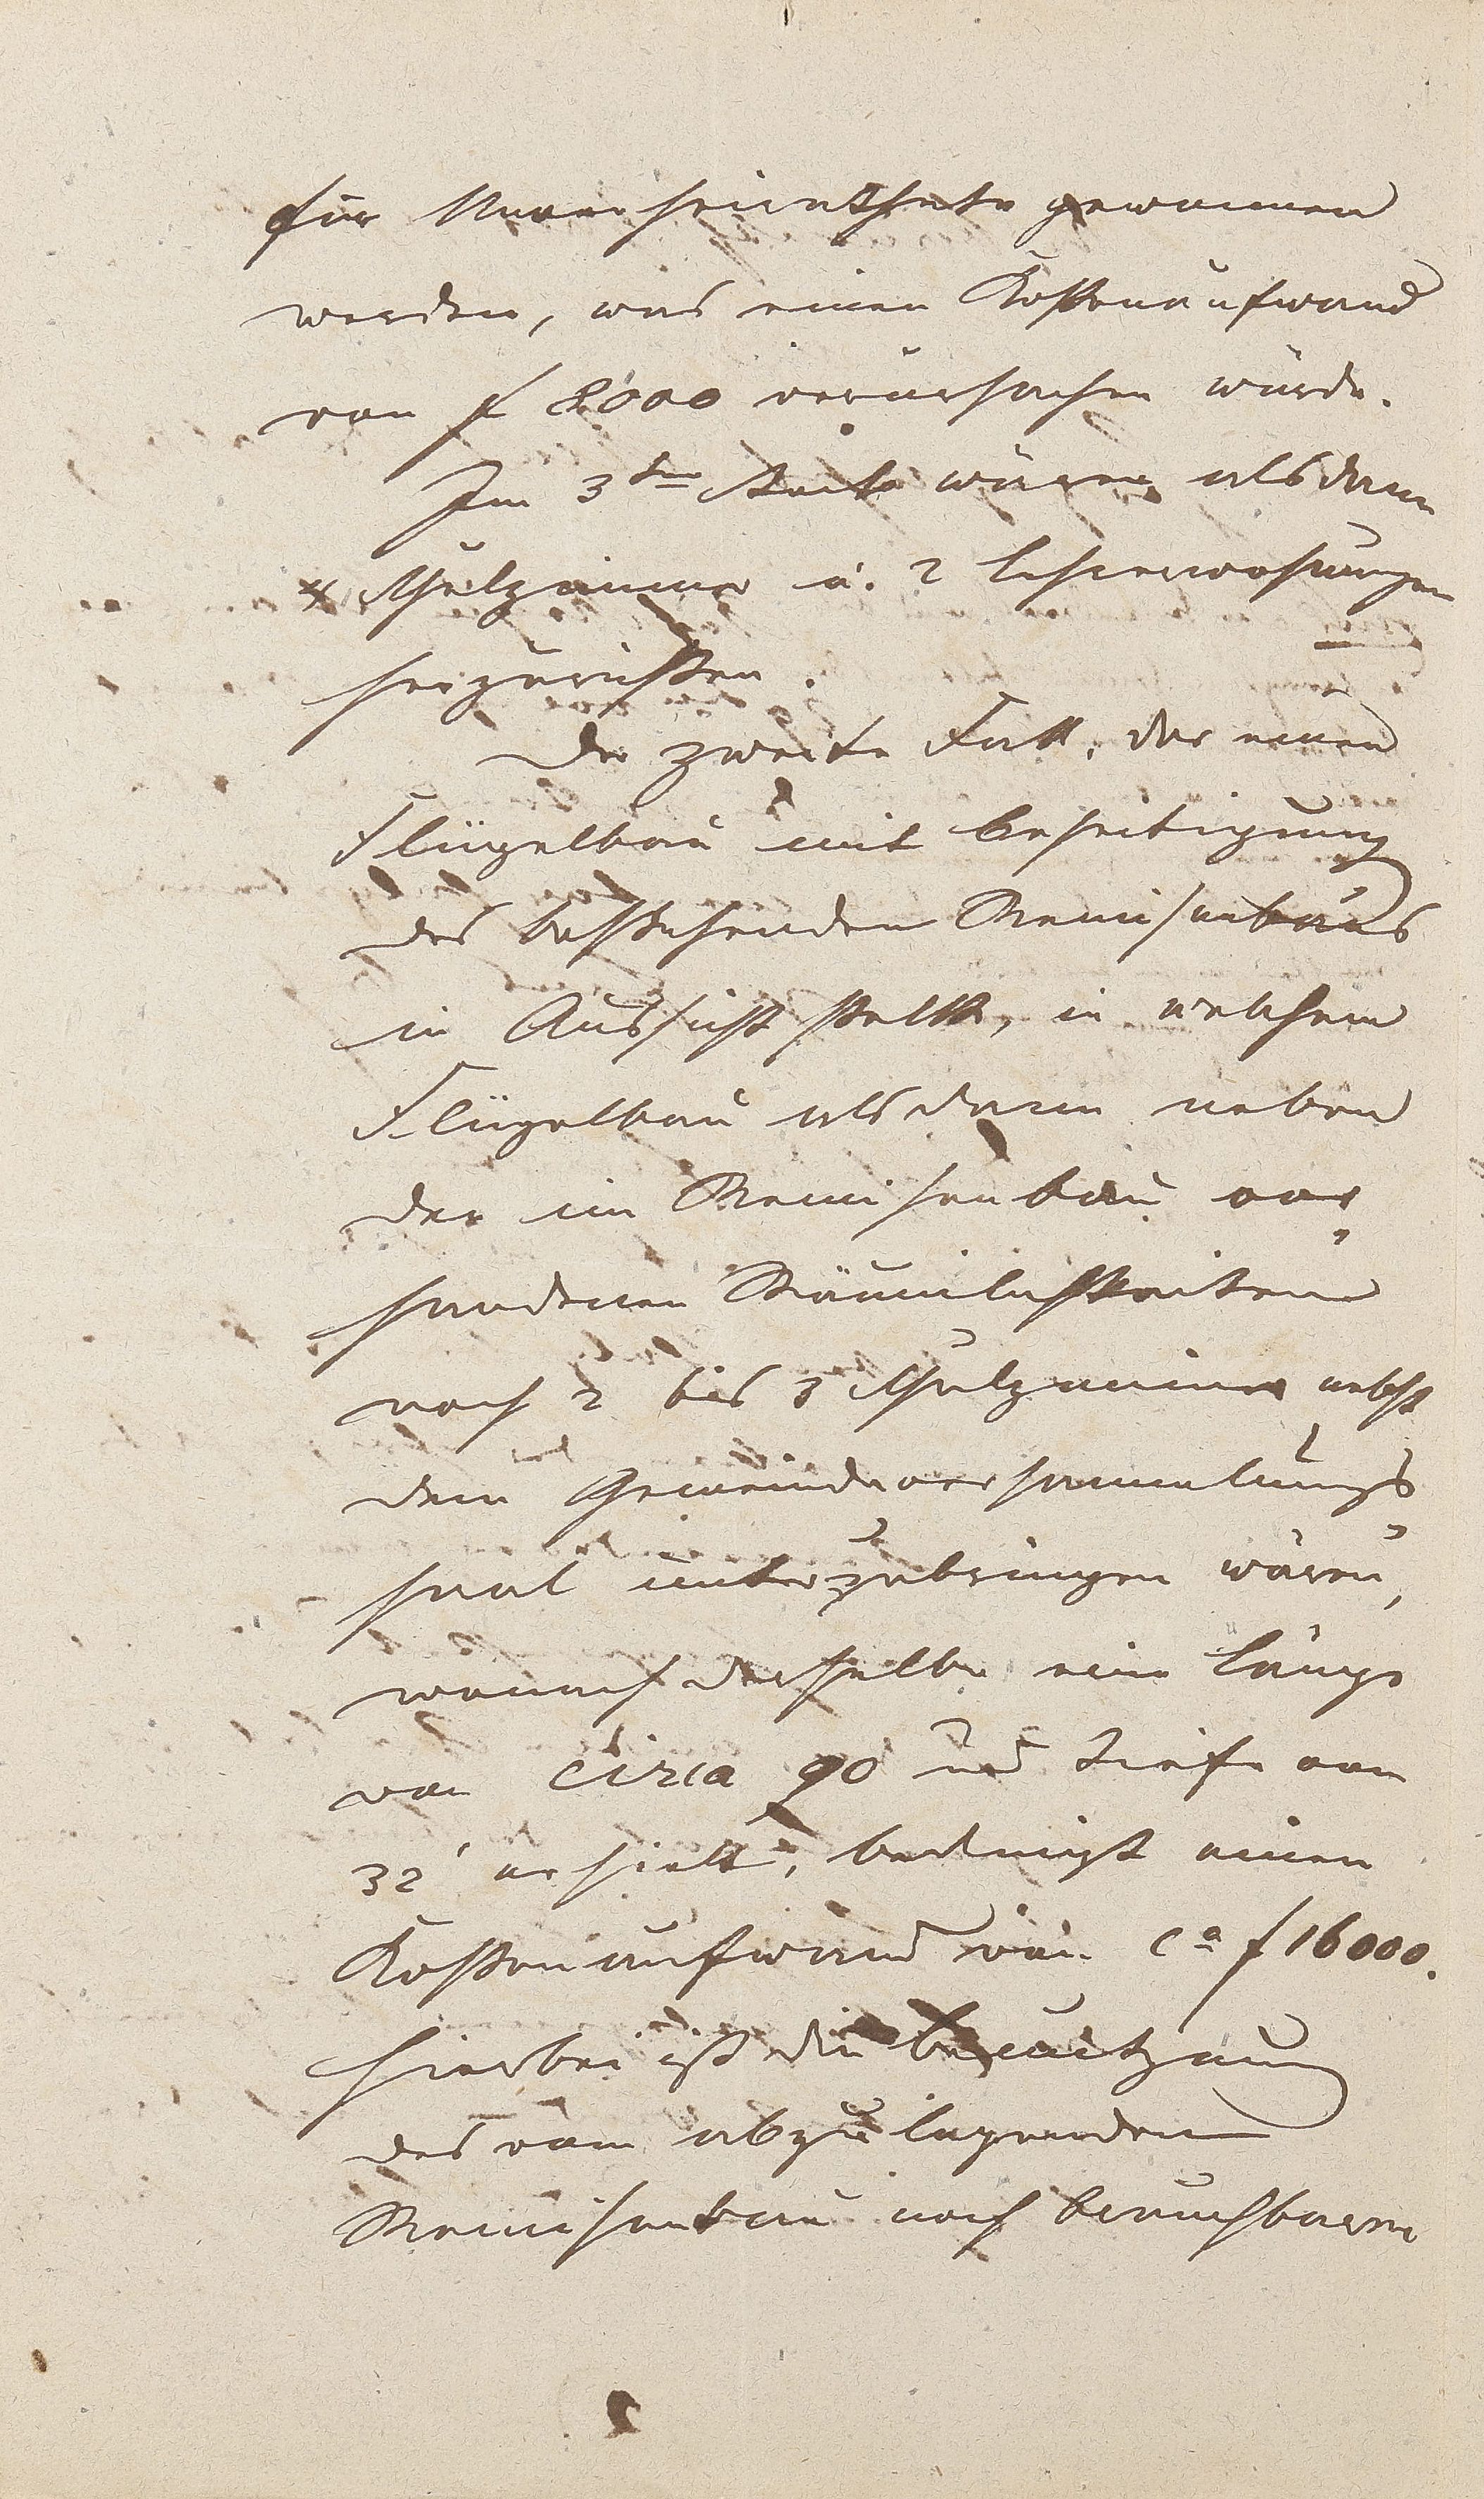 für gewonnen
werden, was einen Kostenaufwand
von f 8000 verursachen würde.
Im 3ten Stock wären alsdann
4 Schulzimmer u. 2 Lehrerwohnungen
herzurichten.
Der zweite Fall, der einen
Flügelbau mit Beseitigung
des bestehenden Remisenbaus
in Aussicht stellt, in welchem
Flügelbau alsdann neben
der im Remisenbau vor„
handenen Räumlichkeiten
noch 2 bis 3 Schulzimmer nebst
dem Gemeindeversammlungs„
saal unterzubringen wären,
wonach derselbe eine Länge
von circa 90' und Tiefe von
32' erhielt, bedingt einen
Kostenaufwand von ca f 16000.
Hierbei ist die Benützung
des vom abzulegenden
Remisenbau noch brauchbaren